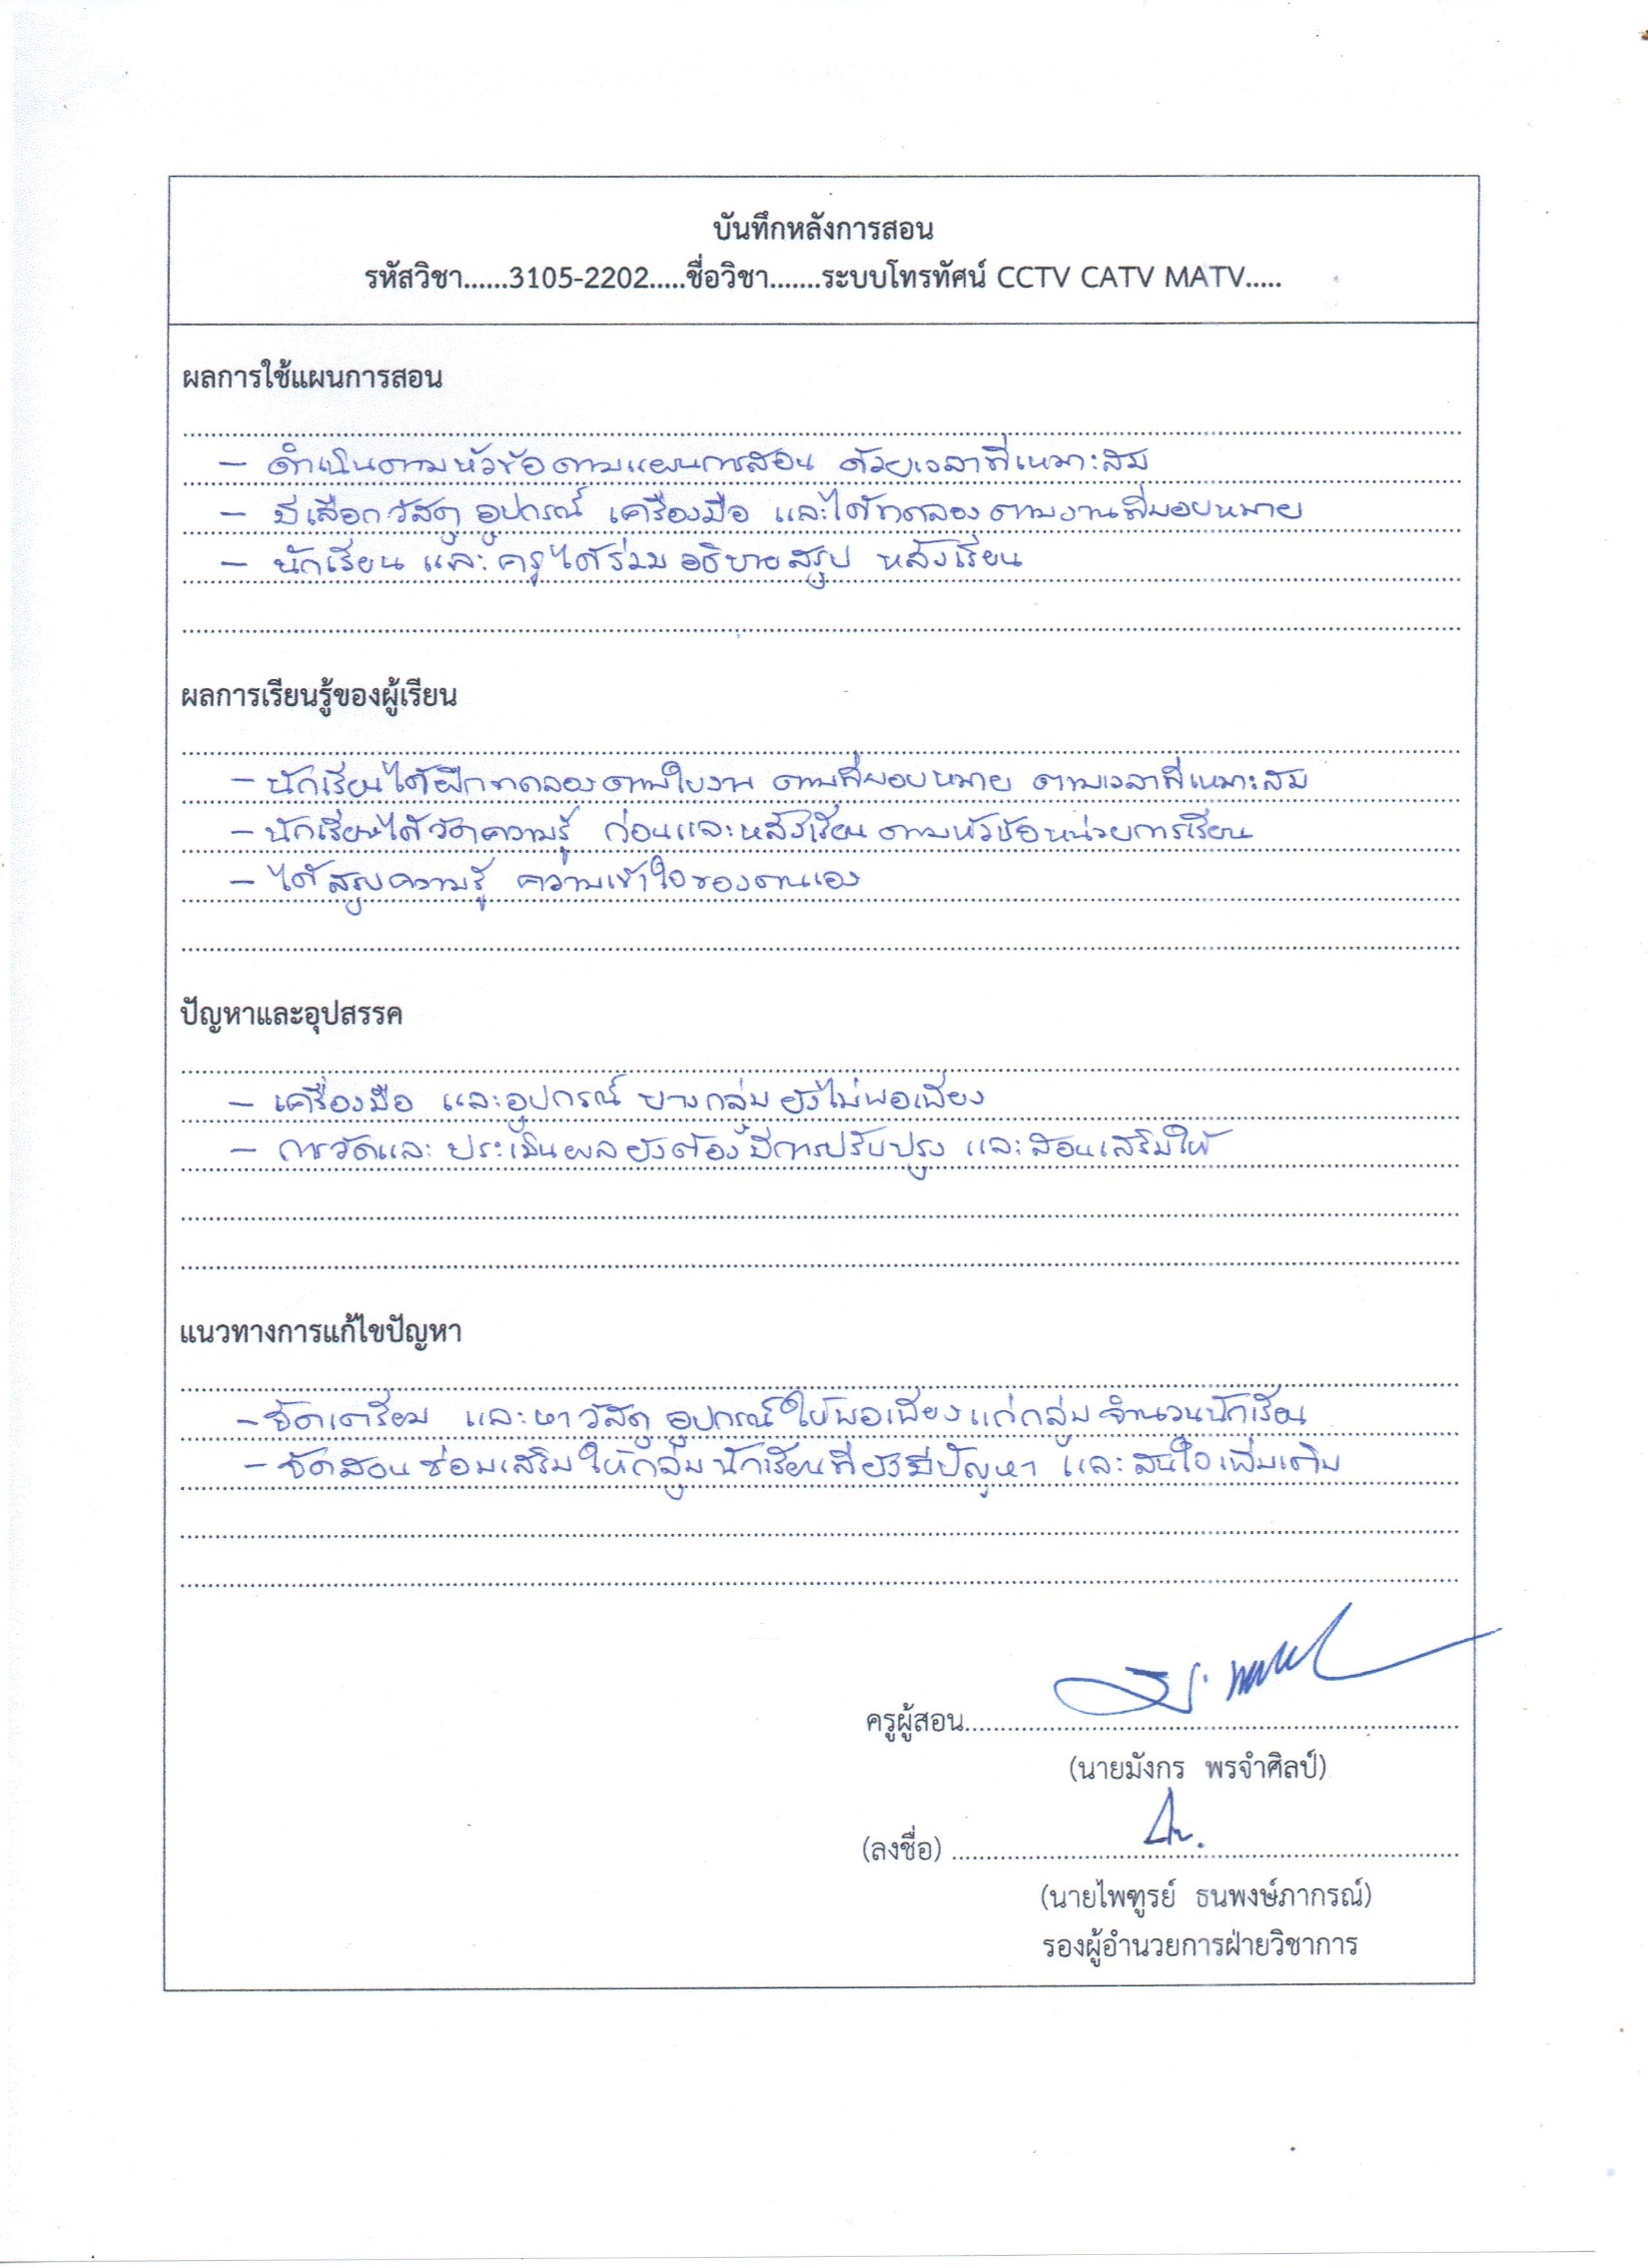 บันทึกหลังการสอน
รหัสวิชา......3105-2202.....ชื่อวิชา.......ระบบโทรทัศน์ CCTV CATV MATV.....
ผลการใช้แผนการสอน
- ดำเนินตามหัวข้อตามแผนการสอน ด้วยเวลาที่เหมาะสม
- มีเลือกวัสดุ อุปกรณ์ เครื่องมือ และได้ทดลองตามงานที่มอบหมาย
- นักเรียน และ ครูได้ร่วม อธิบายสรุป หลังเรียน
ผลการเรียนรู้ของผู้เรียน
- นักเรียนได้ฝึกทดลองตามใบงาน ตามที่มอบหมาย ตามเวลาที่เหมาะสม
- นักเรียนได้วัดความรู้ ก่อนและหลังเรียน ตามหัวข้อหน่วยการเรียน
- ได้สรุปความรู้ ความเข้าใจของตนเอง
ปัญหาและอุปสรรค
- เครื่องมือ และอุปกรณ์ บางกลุ่ม ยังไม่พอเพียง
- การวัดและ ประเมินผลยังต้องมีการปรับปรุง และสอนเสริมให้
แนวทางการแก้ไขปัญหา
- จัดเตรียม และหาวัสดุ อุปกรณ์ให้พอเพียงแก่กลุ่ม จำนวนนักเรียน
- จัดสอนซ่อมเสริม ให้กลุ่มนักเรียนที่ยังมีปัญหา และสนใจเพิ่มเติม
ครูผู้สอน
(นายมังกร พรจำศิลป์)
(ลงชื่อ)
(นายไพฑูรย์ ธนพงษ์ภากรณ์)
รองผู้อำนวยการฝ่ายวิชาการ